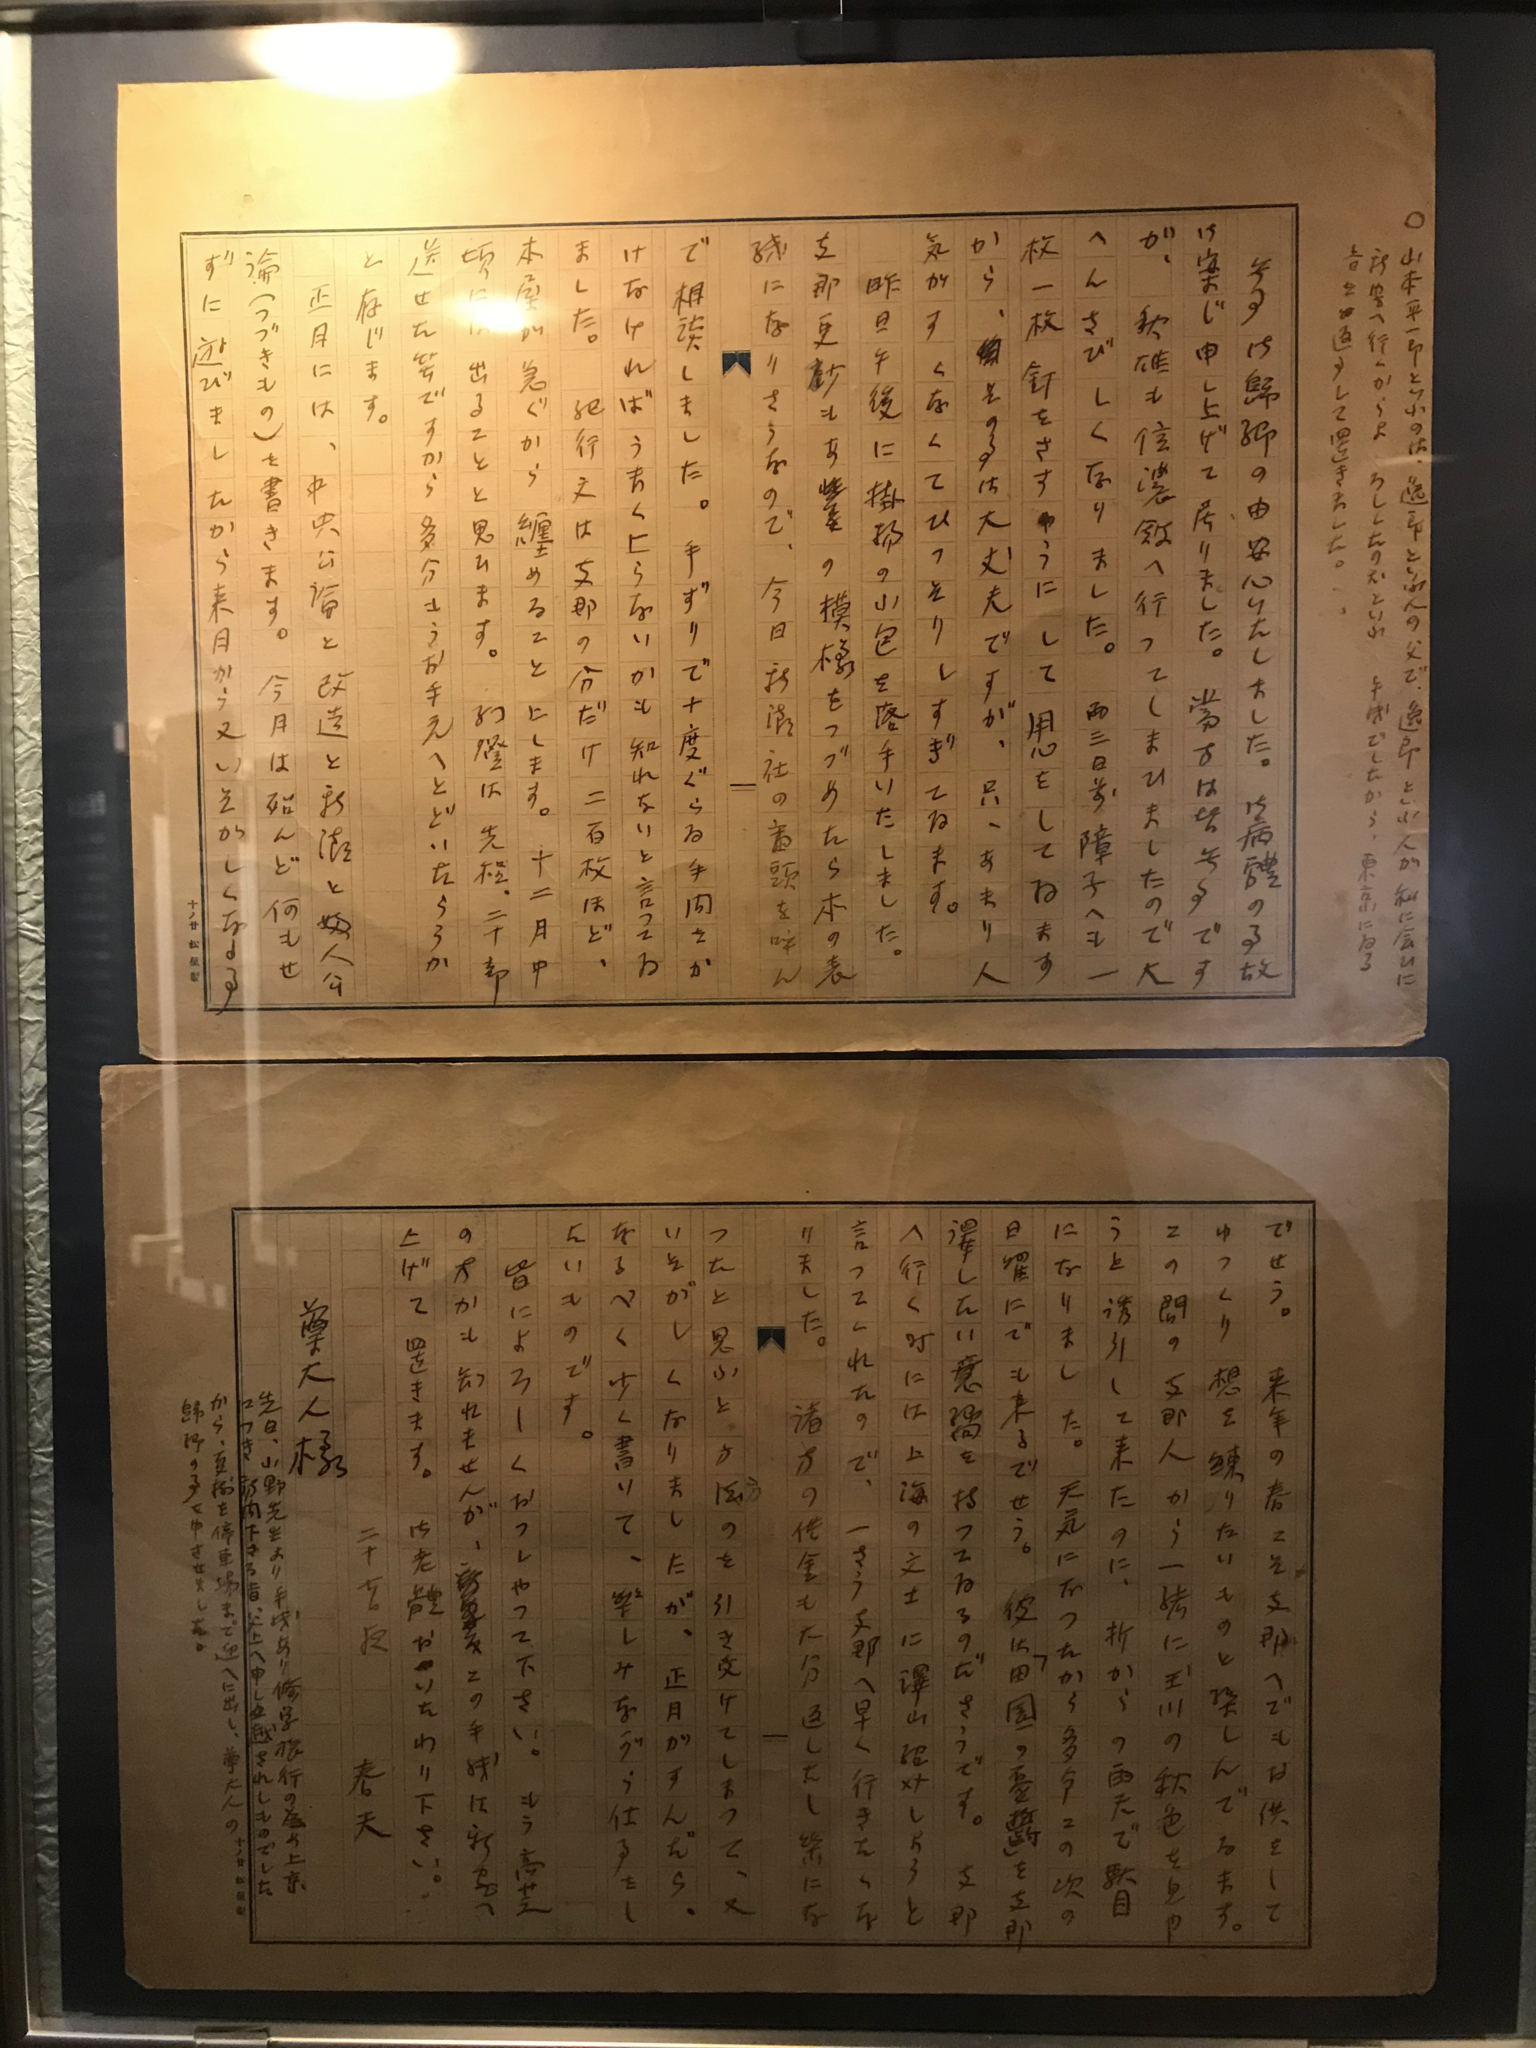 ○山本平一郎といふのは、逸郎といふ人の父で、逸郎といふ人が私に会ひに
新宮へ行くからよろしくたのむといふ手紙でしたから、東京にゐる
旨を返事して置きました。
無事御歸郷の由安心いたしました。御病體の事故
御案じ申し上げて居りました。當方は皆無事です
が、秋雄も信濃飯へ行つてしまひましたので大
へんさびしくなりました。両三日前障子へも一
枚一枚釘をさすやうにして用心をしてゐます
から、その事は大丈夫ですが、只、あまり人
気がすくなくてひつそりしすぎてゐます。
昨日午後に掛物の小包を落手いたしました。
支那更紗もあの模様をつづめたら本の表
紙になりさうなので、今日新潮社の番頭を呼ん
で相談しました。手ずりで十度ぐらゐ手間をか
けなければうまく上らないかも知れないと言つてゐ
ました。紀行文は支那の分だけ二百枚ほど、
本屋が急ぐから纏めることにします。十二月中
頃には出ることと思ひます。は先程、二十部
送せた筈ですから多分もうお手元へとどいたらうか
と存じます。
正月には、中央公論と改造と新潮と婦人公
論(つづきもの)を書きます。今月は殆んど何もせ
ずに遊びましたから来月から又いそがしくなる事
十ノ廿 松屋製
でせう。来年の春こそ支那へでもお供をして
ゆつくり想を練りたいものと樂しんでゐます。
この間の支那人から一緒に玉川の秋色を見や
うと誘引して来たのに、折からの雨天で駄目
になりました。天気になつたから多分この次の
日曜にでも来るでせう。彼は「田園の憂鬱」を支那
譯したい意嚮を持つてゐるのださうです。支那
へ行く時には上海の文士に澤山紹介しようと
言つてくれたので、一さう支那へ早く行きたくな
りました。諸方の借金も大分返したし樂にな
つたと思ふと、方のを引き受けてしまつて、又
いそがしくなりましたが、正月がすんだら、
なるべく少く書いて、樂しみながら仕事をし
たいものです。
皆によろしくおつしやつて下さい。もう高芝
の方かも知れませんが、この手紙は新宮へ
上げて置きます。御老體おいたわり下さい。
二十七日夜 春夫
大人様
先日、小野先生より手紙あり修学旅行の為め上京
につき下さる旨、父上へ申し越されしものでした
から、を停車場まで迎へに出し、大人の
歸郷の事を申させました。
十ノ廿 松屋製